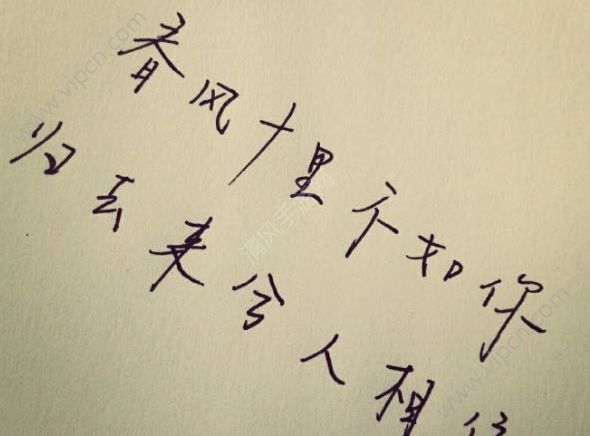 春风十里不如你
归去来兮人相
www.vipcn.com
www.vipcn.com